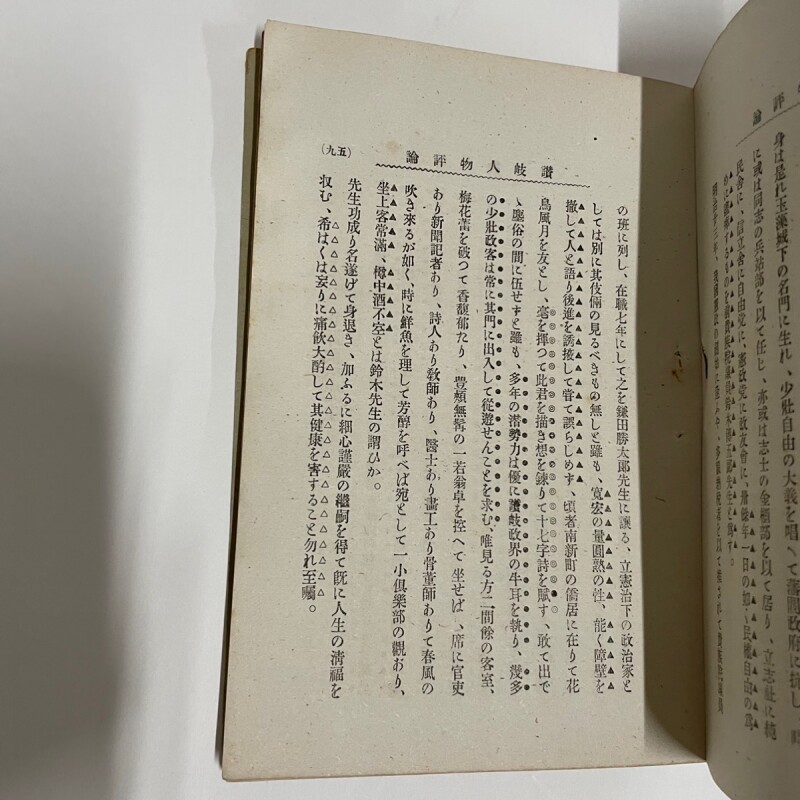 身は是れ玉藻城下の名門に生れ、少壯自由の大義を唱へて藩閥政府に抗し、時
に或は同志の兵站部を以て任じ、亦或は志士の金櫃部を以て居り、立志社に純
民舍に、信立舍に自由党に、憲政党に政友會に、幾年一日の如く民權自由の爲
讚岐人物評論
の班に列し、在職七年にして之を鎌田勝太郞先生に讓る、立憲治下の政治家と
しては別に其伎倆の見るべきもの無しと雖も、寬宏の量圓熟の性、能く障壁を
撤して人と語り後進を誘接して甞て誤らしめず、頃者南新町の僑居に在りて花
鳥風月を友とし、毫を揮つて此君を描き想を鍊りて十七字詩を賦す、敢て出で
ゝ塵俗の間に伍せずと雖も、多年の潜勢力は優に讚岐政界の牛耳を執り、幾多
の少壯政客は常に其門に出入して從遊せんことを求む、唯見る方二間餘の客室、
梅花蕾を破つて香馥郁たり、豊頰無髯の一若翁卓を控へて坐せば、席に官吏
あり新聞記者あり、詩人あり敎師あり、醫士あり畵工あり骨董師ありて春風の
吹き來るが如く、時に鮮魚を理して芳醇を呼べば宛として一小俱樂部の觀おり、
坐上客常滿、樽中酒不空とは鈴木先生の謂ひか。
先生功成り名遂げて身退き、加ふるに細心謹嚴の繼嗣を得て旣に人生の淸福を
収む、希はくは妄りに痛飮大酌して其健康を害すること勿れ至囑。
(九五)